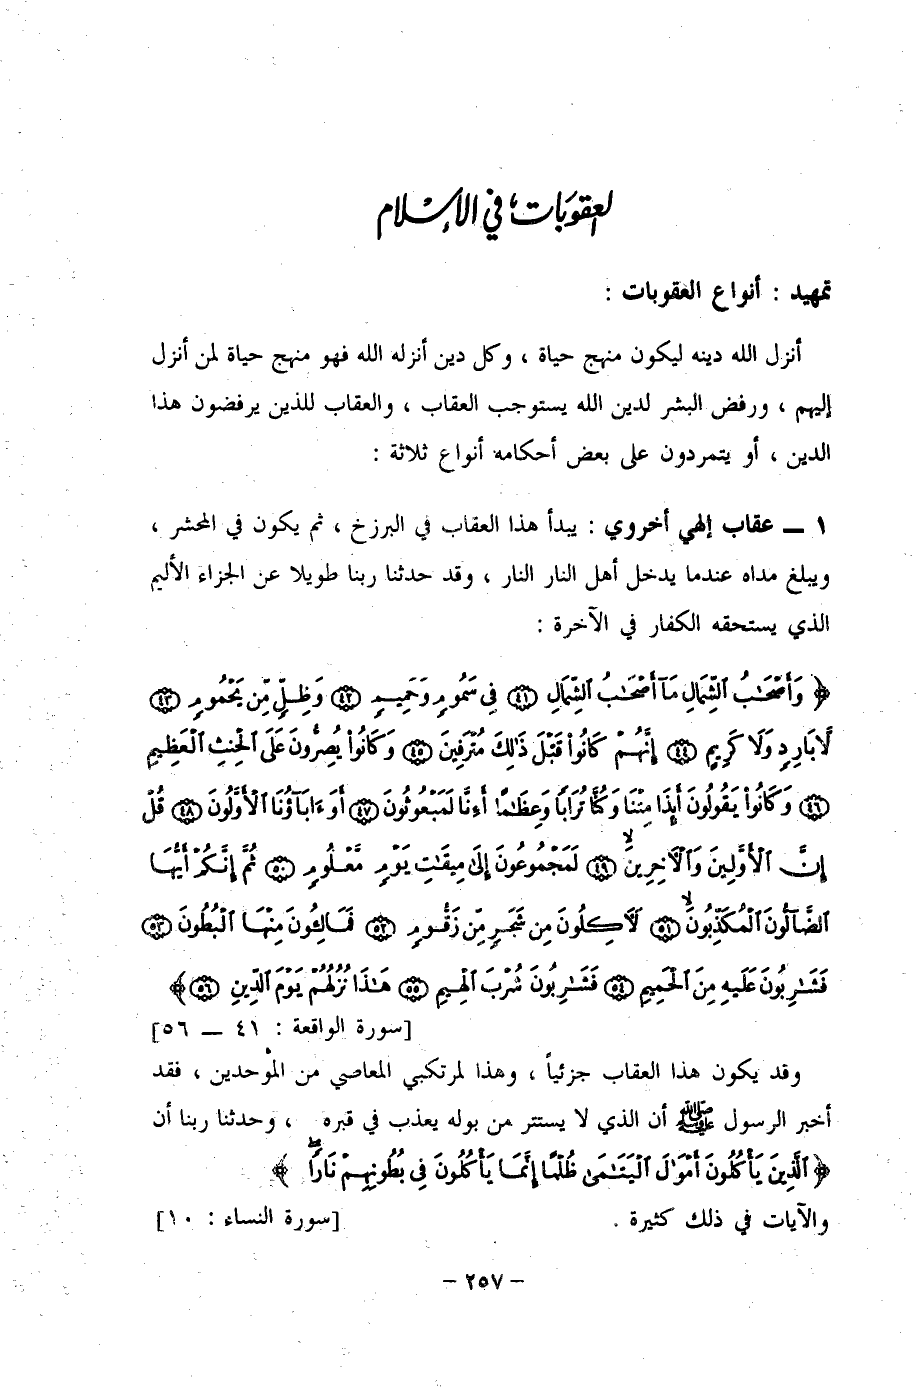 العقوبات في الإسلام
تمهيد : أنواع العقوبات :
أنزل الله دينه ليكون منهج حياة ، وكل دين أنزله الله فهو منهج حياة لمن أنزل
إليهم ، ورفض البشر لدين الله يستوجب العقاب ، والعقاب للذين يرفضون هذا
الدين ، أو يتمردون على بعض أحكامه أنواع ثلاثة :
١ ــ عقاب إلهي أخروي : يبدأ هذا العقاب في البرزخ ، ثم يكون في المحشر ،
ويبلغ مداه عندما يدخل أهل النار النار ، وقد حدثنا ربنا طويلا عن الجزاء الأليم
الذي يستحقه الكفار في الآخرة :
﴿ وَأَصْحَٰبُ ٱلشِّمَالِ مَآ أَصْحَٰبُ ٱلشِّمَالِ ٤١ فِى سَمُومٍ وَحَمِيمٍ ٤٢ وَظِلٍّ مِّن يَحْمُومٍ ٤٣
لَّا بَارِدٍ وَلَا كَرِيمٍ ٤٤ إِنَّهُمْ كَانُوا۟ قَبْلَ ذَٰلِكَ مُتْرَفِينَ ٤٥ وَكَانُوا۟ يُصِرُّونَ عَلَى ٱلْحِنثِ ٱلْعَظِيمِ
٤٦ وَكَانُوا۟ يَقُولُونَ أَئِذَا مِتْنَا وَكُنَّا تُرَابًا وَعِظَٰمًا أَءِنَّا لَمَبْعُوثُونَ ٤٧ أَوَءَابَآؤُنَا ٱلْأَوَّلُونَ ٤٨ قُلْ
إِنَّ ٱلْأَوَّلِينَ وَٱلْآخِرِينَ ٤٩ لَمَجْمُوعُونَ إِلَىٰ مِيقَٰتِ يَوْمٍ مَّعْلُومٍ ٥٠ ثُمَّ إِنَّكُمْ أَيُّهَا
ٱلضَّآلُّونَ ٱلْمُكَذِّبُونَ ٥١ لَآكِلُونَ مِن شَجَرٍ مِّن زَقُّومٍ ٥٢ فَمَالِـُٔونَ مِنْهَا ٱلْبُطُونَ ٥٣
فَشَٰرِبُونَ عَلَيْهِ مِنَ ٱلْحَمِيمِ ٥٤ فَشَٰرِبُونَ شُرْبَ ٱلْهِيمِ ٥٥ هَٰذَا نُزُلُهُمْ يَوْمَ ٱلدِّينِ ٥٦ ﴾
[سورة الواقعة : ٤١ ــ ٥٦]
وقد يكون هذا العقاب جزئياً ، وهذا لمرتكبي المعاصي من الموحدين ، فقد
أخبر الرسول ﷺ أن الذي لا يستتر من بوله يعذب في قبره ، وحدثنا ربنا أن
﴿ ٱلَّذِينَ يَأْكُلُونَ أَمْوَٰلَ ٱلْيَتَٰمَىٰ ظُلْمًا إِنَّمَا يَأْكُلُونَ فِى بُطُونِهِمْ نَارًا ﴾
والآيات في ذلك كثيرة . [سورة النساء : ١٠]
– ٢٥٧ –